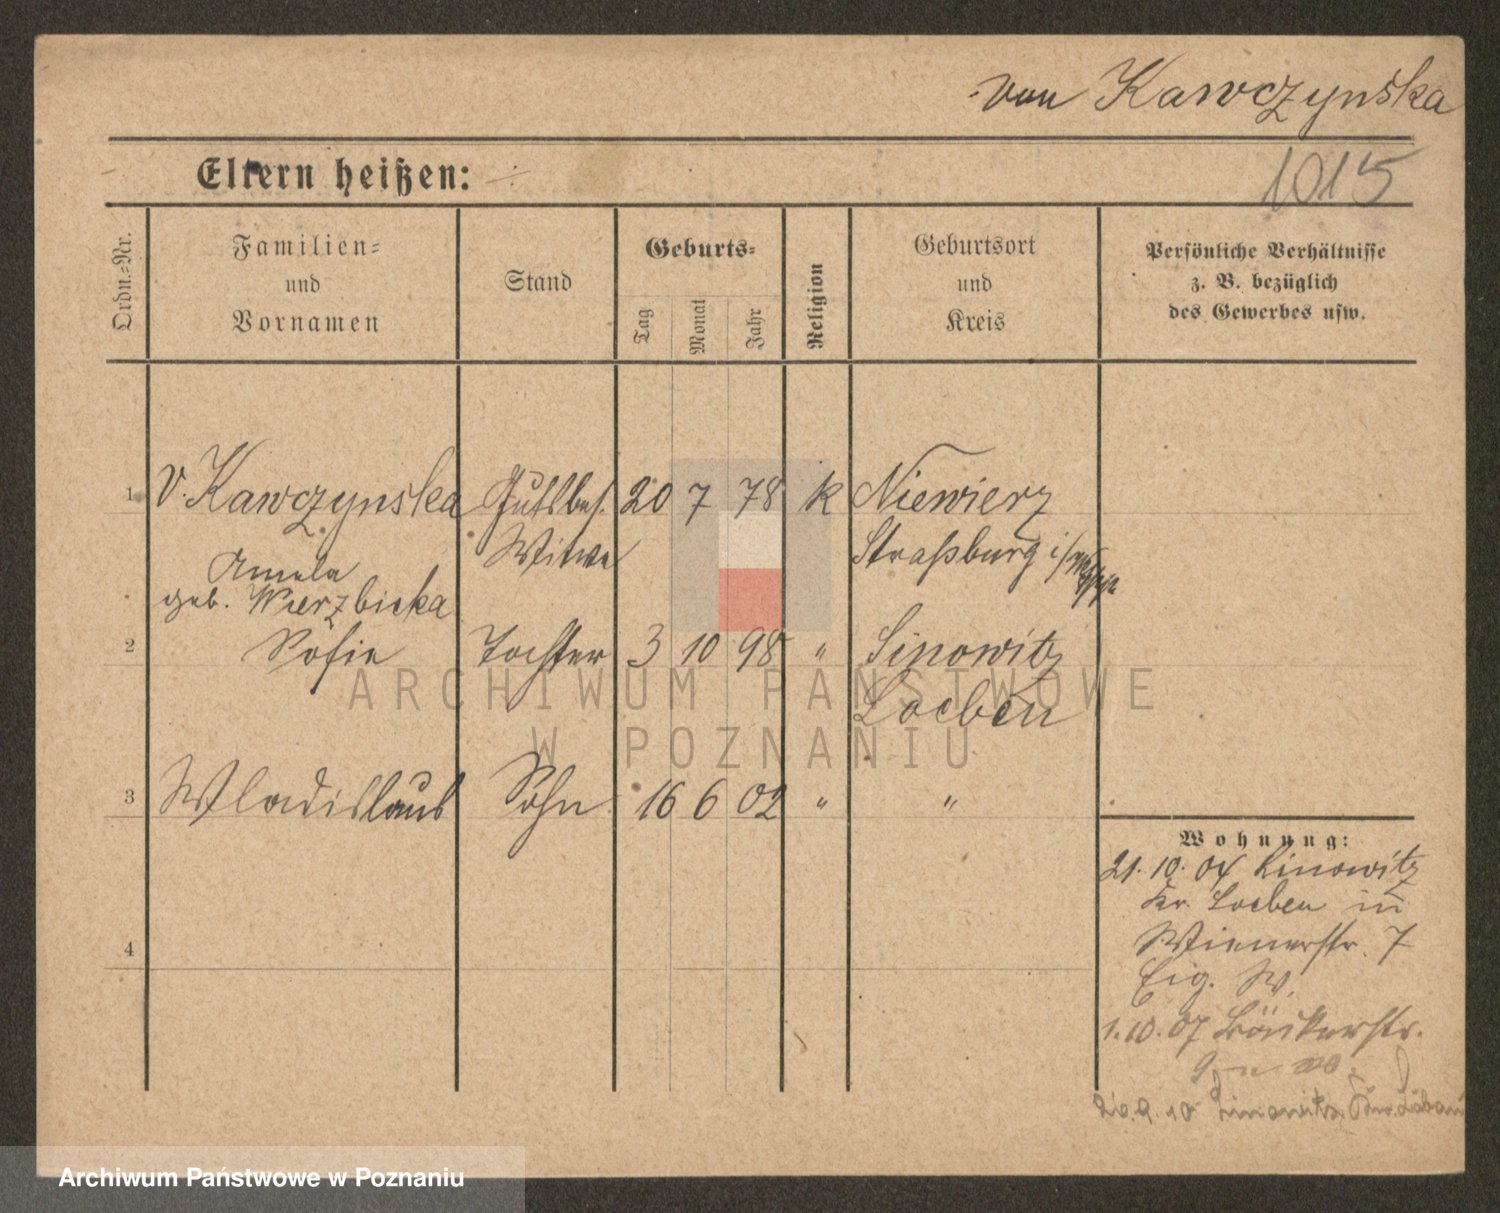 von Kawczynska
Eltern heißen:
1015
Ordn.-Nr.
Familien-
und
Vornamen
Stand
Geburts-
Tag
Monat
Jahr
Religion
Geburtsort
und
Kreis
Persönliche Verhältnisse
z. B. bezüglich
des Gewerbes usw.
1 v. Kawczynska Gutsbes. 20 7 78 k Niewierz
Witwe Straßburg i/
Amela
geb. Wierzbicka
2 Sofie Tochter 3 10 98 " Linowitz
Loebau
3 Wladislaus Sohn 16 6 02 " "
4
Wohnung:
21. 10. 04 Linowitz
Kr. Loebau in
Wienerstr. 7
Eig. W.
1. 10. 07 Bäckerstr.
26. 9. 10 Linowitz
ARCHIWUM PAŃSTWOWE
W POZNANIU
Archiwum Państwowe w Poznaniu